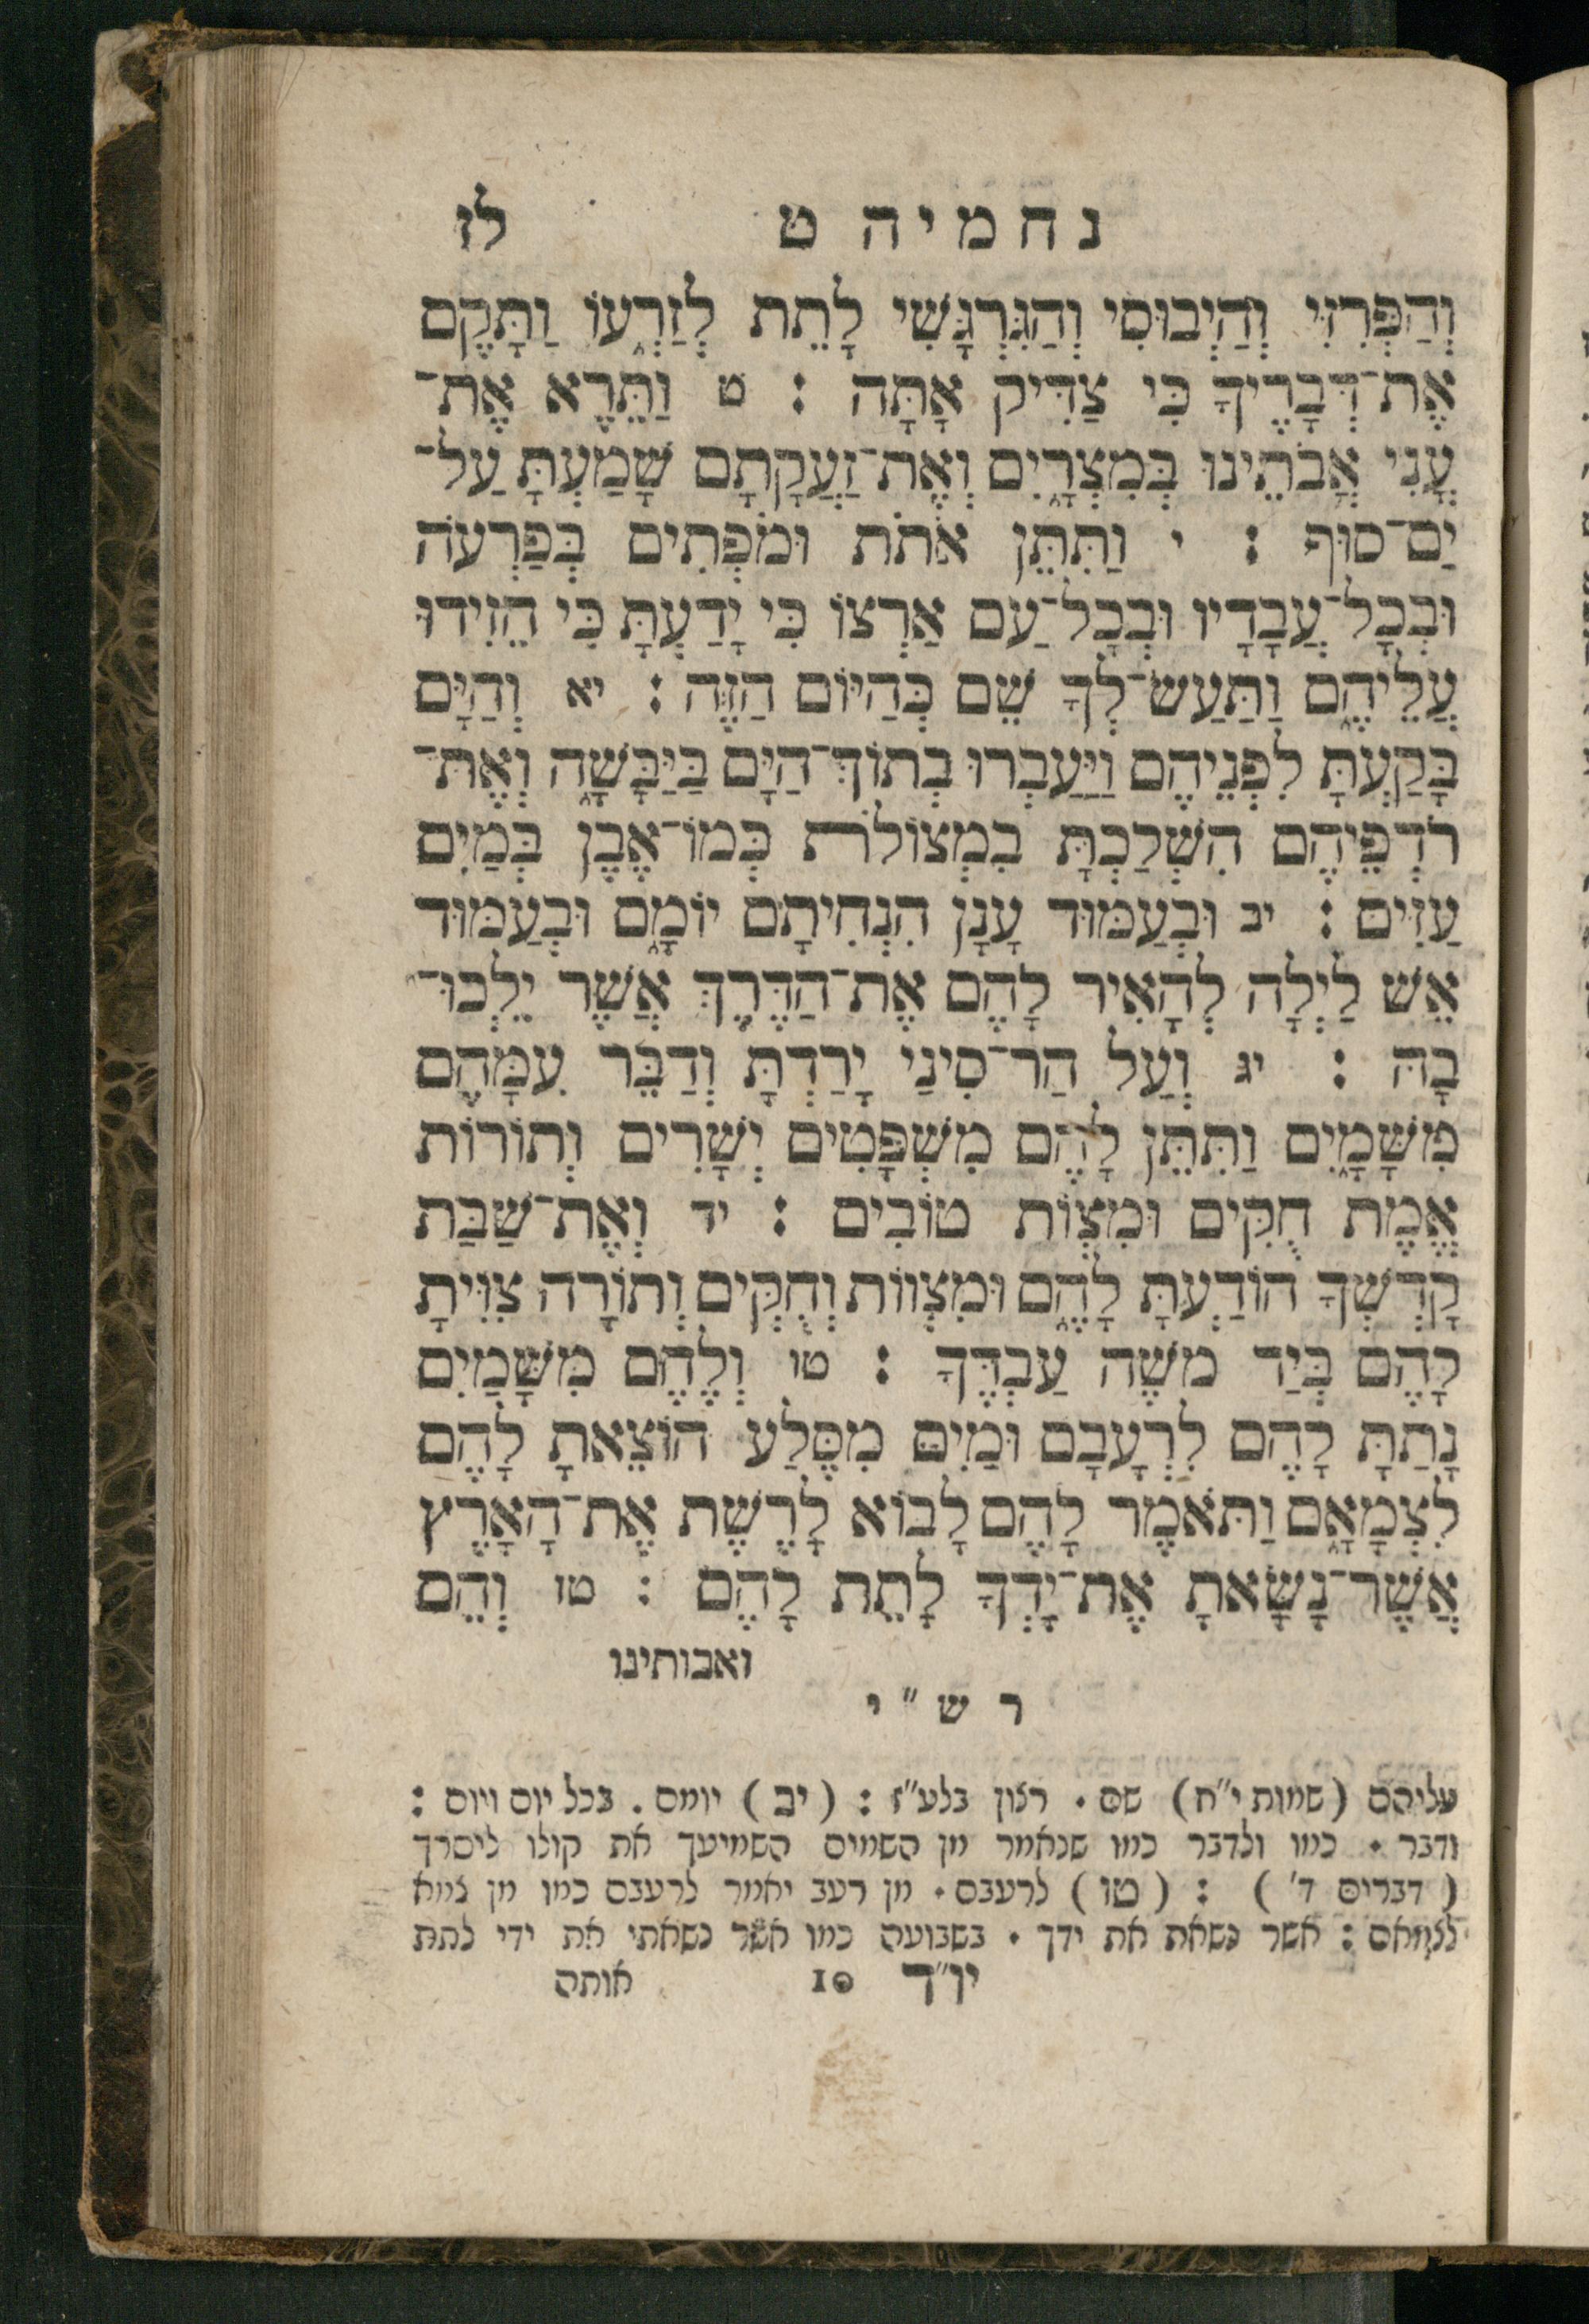 נחמיה ט לז
וְהַפְּרִזִּי וְהַיְבוּסִי וְהַגִּרְגָּשִׁי לָתֵת לְזַרְעוֹ וַתָּקֶם
אֶת־דְּבָרֶיךָ כִּי צַדִּיק אָתָּה : ט וַתֵּרֶא אֶת־
עֳנִי אֲבֹתֵינוּ בְּמִצְרָיִם וְאֶת־זַעֲקָתָם שָׁמַעְתָּ עַל־
יַם־סוּף : י וַתִּתֵּן אֹתֹת וּמֹפְתִים בְּפַרְעֹה
וּבְכָל־עֲבָדָיו וּבְכָל־עַם אַרְצוֹ כִּי יָדַעְתָּ כִּי הֵזִידוּ
עֲלֵיהֶם וַתַּעַשׂ־לְךָ שֵׁם כְּהַיּוֹם הַזֶּה : יא וְהַיָּם
בָּקַעְתָּ לִפְנֵיהֶם וַיַּעַבְרוּ בְתוֹךְ־הַיָּם בַּיַּבָּשָׁה וְאֶת־
רֹדְפֵיהֶם הִשְׁלַכְתָּ בִמְצוֹלֹת כְּמוֹ־אֶבֶן בְּמַיִם
עַזִּים : יב וּבְעַמּוּד עָנָן הִנְחִיתָם יוֹמָם וּבְעַמּוּד
אֵשׁ לַיְלָה לְהָאִיר לָהֶם אֶת־הַדֶּרֶךְ אֲשֶׁר יֵלְכוּ־
בָהּ : יג וְעַל הַר־סִינַי יָרַדְתָּ וְדַבֵּר עִמָּהֶם
מִשָּׁמָיִם וַתִּתֵּן לָהֶם מִשְׁפָּטִים יְשָׁרִים וְתוֹרוֹת
אֱמֶת חֻקִּים וּמִצְוֹת טוֹבִים : יד וְאֶת־שַׁבַּת
קָדְשְׁךָ הוֹדַעְתָּ לָהֶם וּמִצְווֹת וְחֻקִּים וְתוֹרָה צִוִּיתָ
לָהֶם בְּיַד משֶׁה עַבְדֶּךָ : טו וְלֶהֶם מִשָּׁמַיִם
נָתַתָּ לָהֶם לִרְעָבָם וּמַיִם מִסֶּלַע הוֹצֵאתָ לָהֶם
לִצְמָאָם וַתֹּאמֶר לָהֶם לָבוֹא לָרֶשֶׁת אֶת־הָאָרֶץ
אֲשֶׁר־נָשָׂאתָ אֶת־יָדְךָ לָתֵת לָהֶם : טז וְהֵם
ואבותינו
רש״י
עליהם (שמות י״ח) שם . רנון בלע״ז : (יב) יומם . בכל יום ויום :
ודבר . כמו ולדבר כמו שנאמר מן השמים השמיעך את קולו ליסרך
(דברים ד׳) : (טו) לרעבם . מן רעב יאמר לרעבם כמו מן צמא
לצמאם : אשר נשאת את ידך . בשבועה כמו אשר נשאתי את ידי לתת
יו״ד 10 אותה